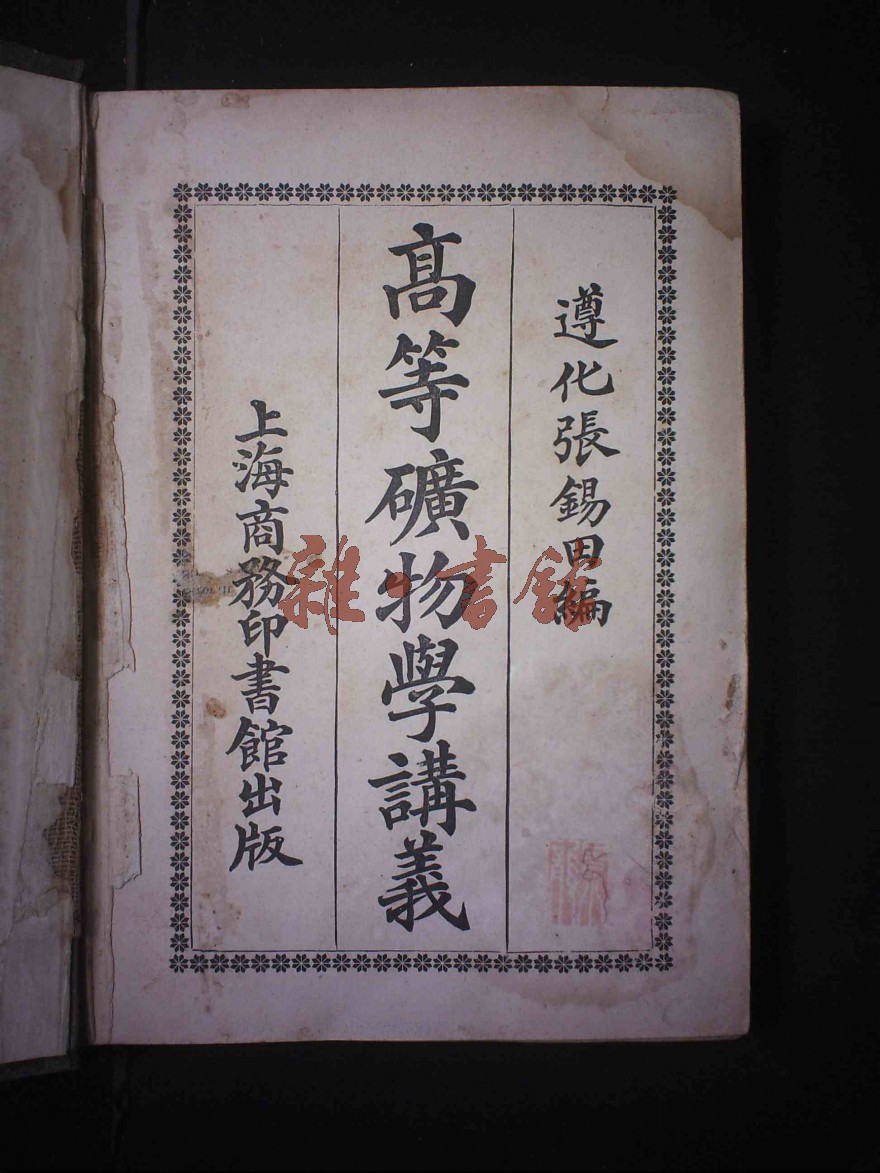 遵化張錫田編
高等礦物學講義
上海商務印書館出版
雜·書館